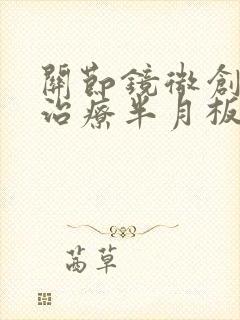 關節鏡微創
治療半月板
茜草